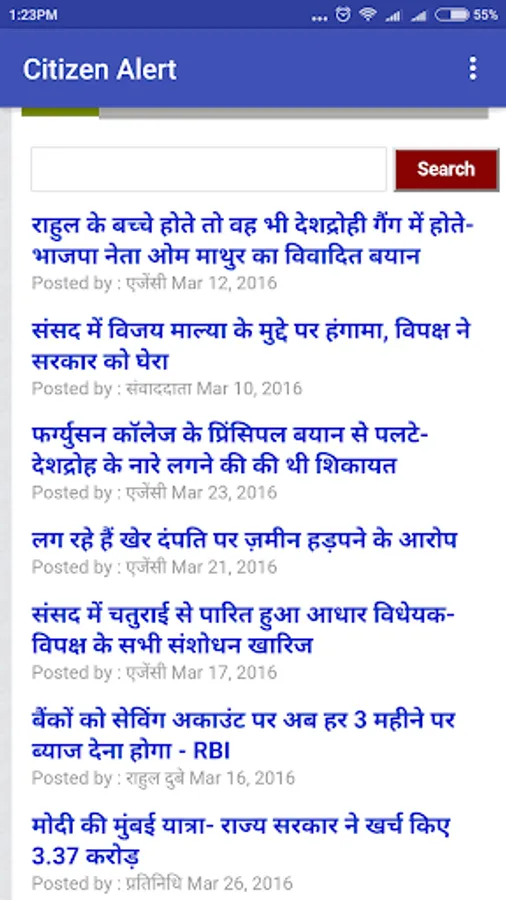 1:23PM ... 55%
Citizen Alert
Search
राहुल के बच्चे होते तो वह भी देशद्रोही गैंग में होते-
भाजपा नेता ओम माथुर का विवादित बयान
Posted by : एजेंसी Mar 12, 2016
संसद में विजय माल्या के मुद्दे पर हंगामा, विपक्ष ने
सरकार को घेरा
Posted by : संवाददाता Mar 10, 2016
फर्ग्युसन कॉलेज के प्रिंसिपल बयान से पलटे-
देशद्रोह के नारे लगने की की थी शिकायत
Posted by : एजेंसी Mar 23, 2016
लग रहे हैं खेर दंपति पर ज़मीन हड़पने के आरोप
Posted by : एजेंसी Mar 21, 2016
संसद में चतुराई से पारित हुआ आधार विधेयक-
विपक्ष के सभी संशोधन खारिज
Posted by : एजेंसी Mar 17, 2016
बैंकों को सेविंग अकाउंट पर अब हर 3 महीने पर
ब्याज देना होगा - RBI
Posted by : राहुल दुबे Mar 16, 2016
मोदी की मुंबई यात्रा- राज्य सरकार ने खर्च किए
3.37 करोड़
Posted by : प्रतिनिधि Mar 26, 2016